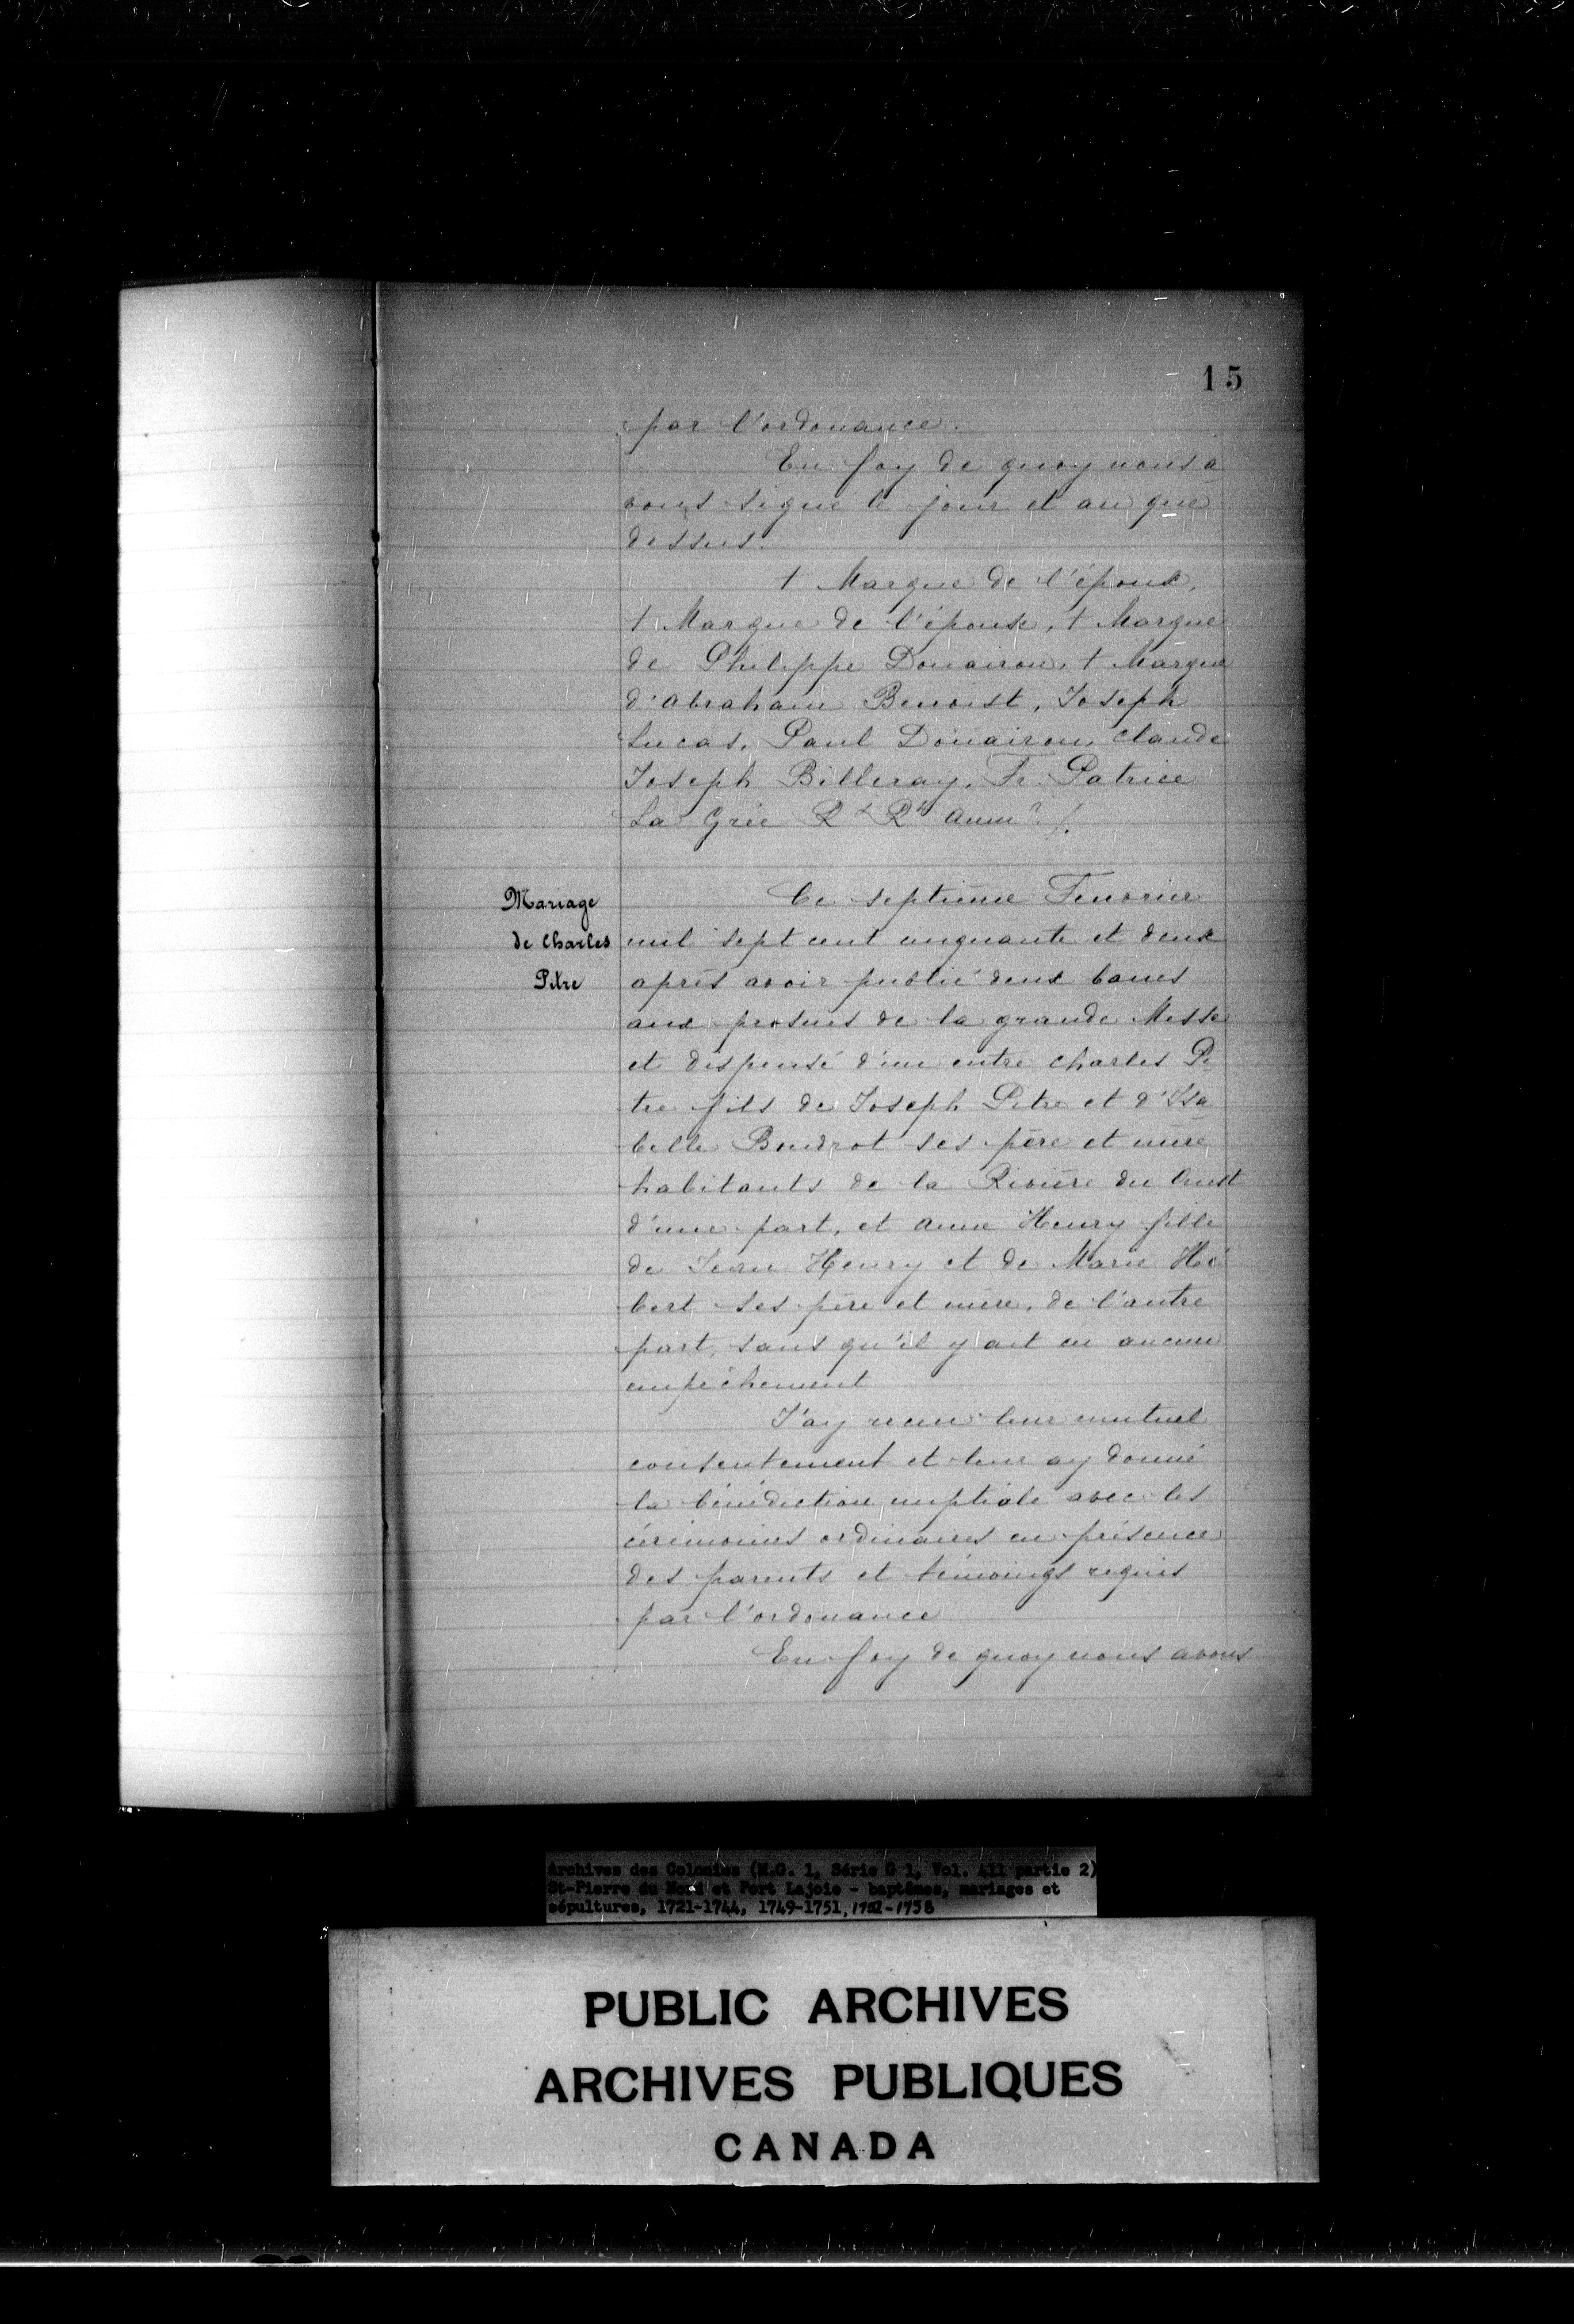 15
par l'ordonance.
En foy de quoy nous a
vons signé le jour et an que
dessus.
† Marque de l'époux,
† Marque de l'épouse, † Marque
de Philippe Douairon, † Marque
d'Abraham Benoist, Joseph
Lucas, Paul Douairon, Claude
Joseph Billeray, Fr. Patrice
La Grée
Mariage
de Charles
Pitre
Ce septième Fevrier
mil sept cent cinquante et deux
après avoir publié deux banes
aux prosnes de la grande Messe
et dispensé d'un entre Charles Pi
tre fils de Joseph Pitre et d'Isa
belle Boudrot ses père et mère
habitants de la Rivière du Ouest
d'une part, et Anne Henry fille
de Jean Henry et de Marie Hé
bert ses père et mère, de l'autre
part, sans qu'il y ait eu aucun
empêchement
J'ay receu leur mutuel
consentement et leur ay donné
la bénédiction nuptiale avec les
cérémonies ordinaires en présence
des parents et témoings requis
par l'ordonance
En foy de quoy nous avons
Archives des Colonies (M.G. 1, Série G 1, Vol. 411 partie 2)
St-Pierre du Nord et Port Lajoie - baptêmes, mariages et
sépultures, 1721-1744, 1749-1751, 1752-1758
PUBLIC ARCHIVES
ARCHIVES PUBLIQUES
CANADA